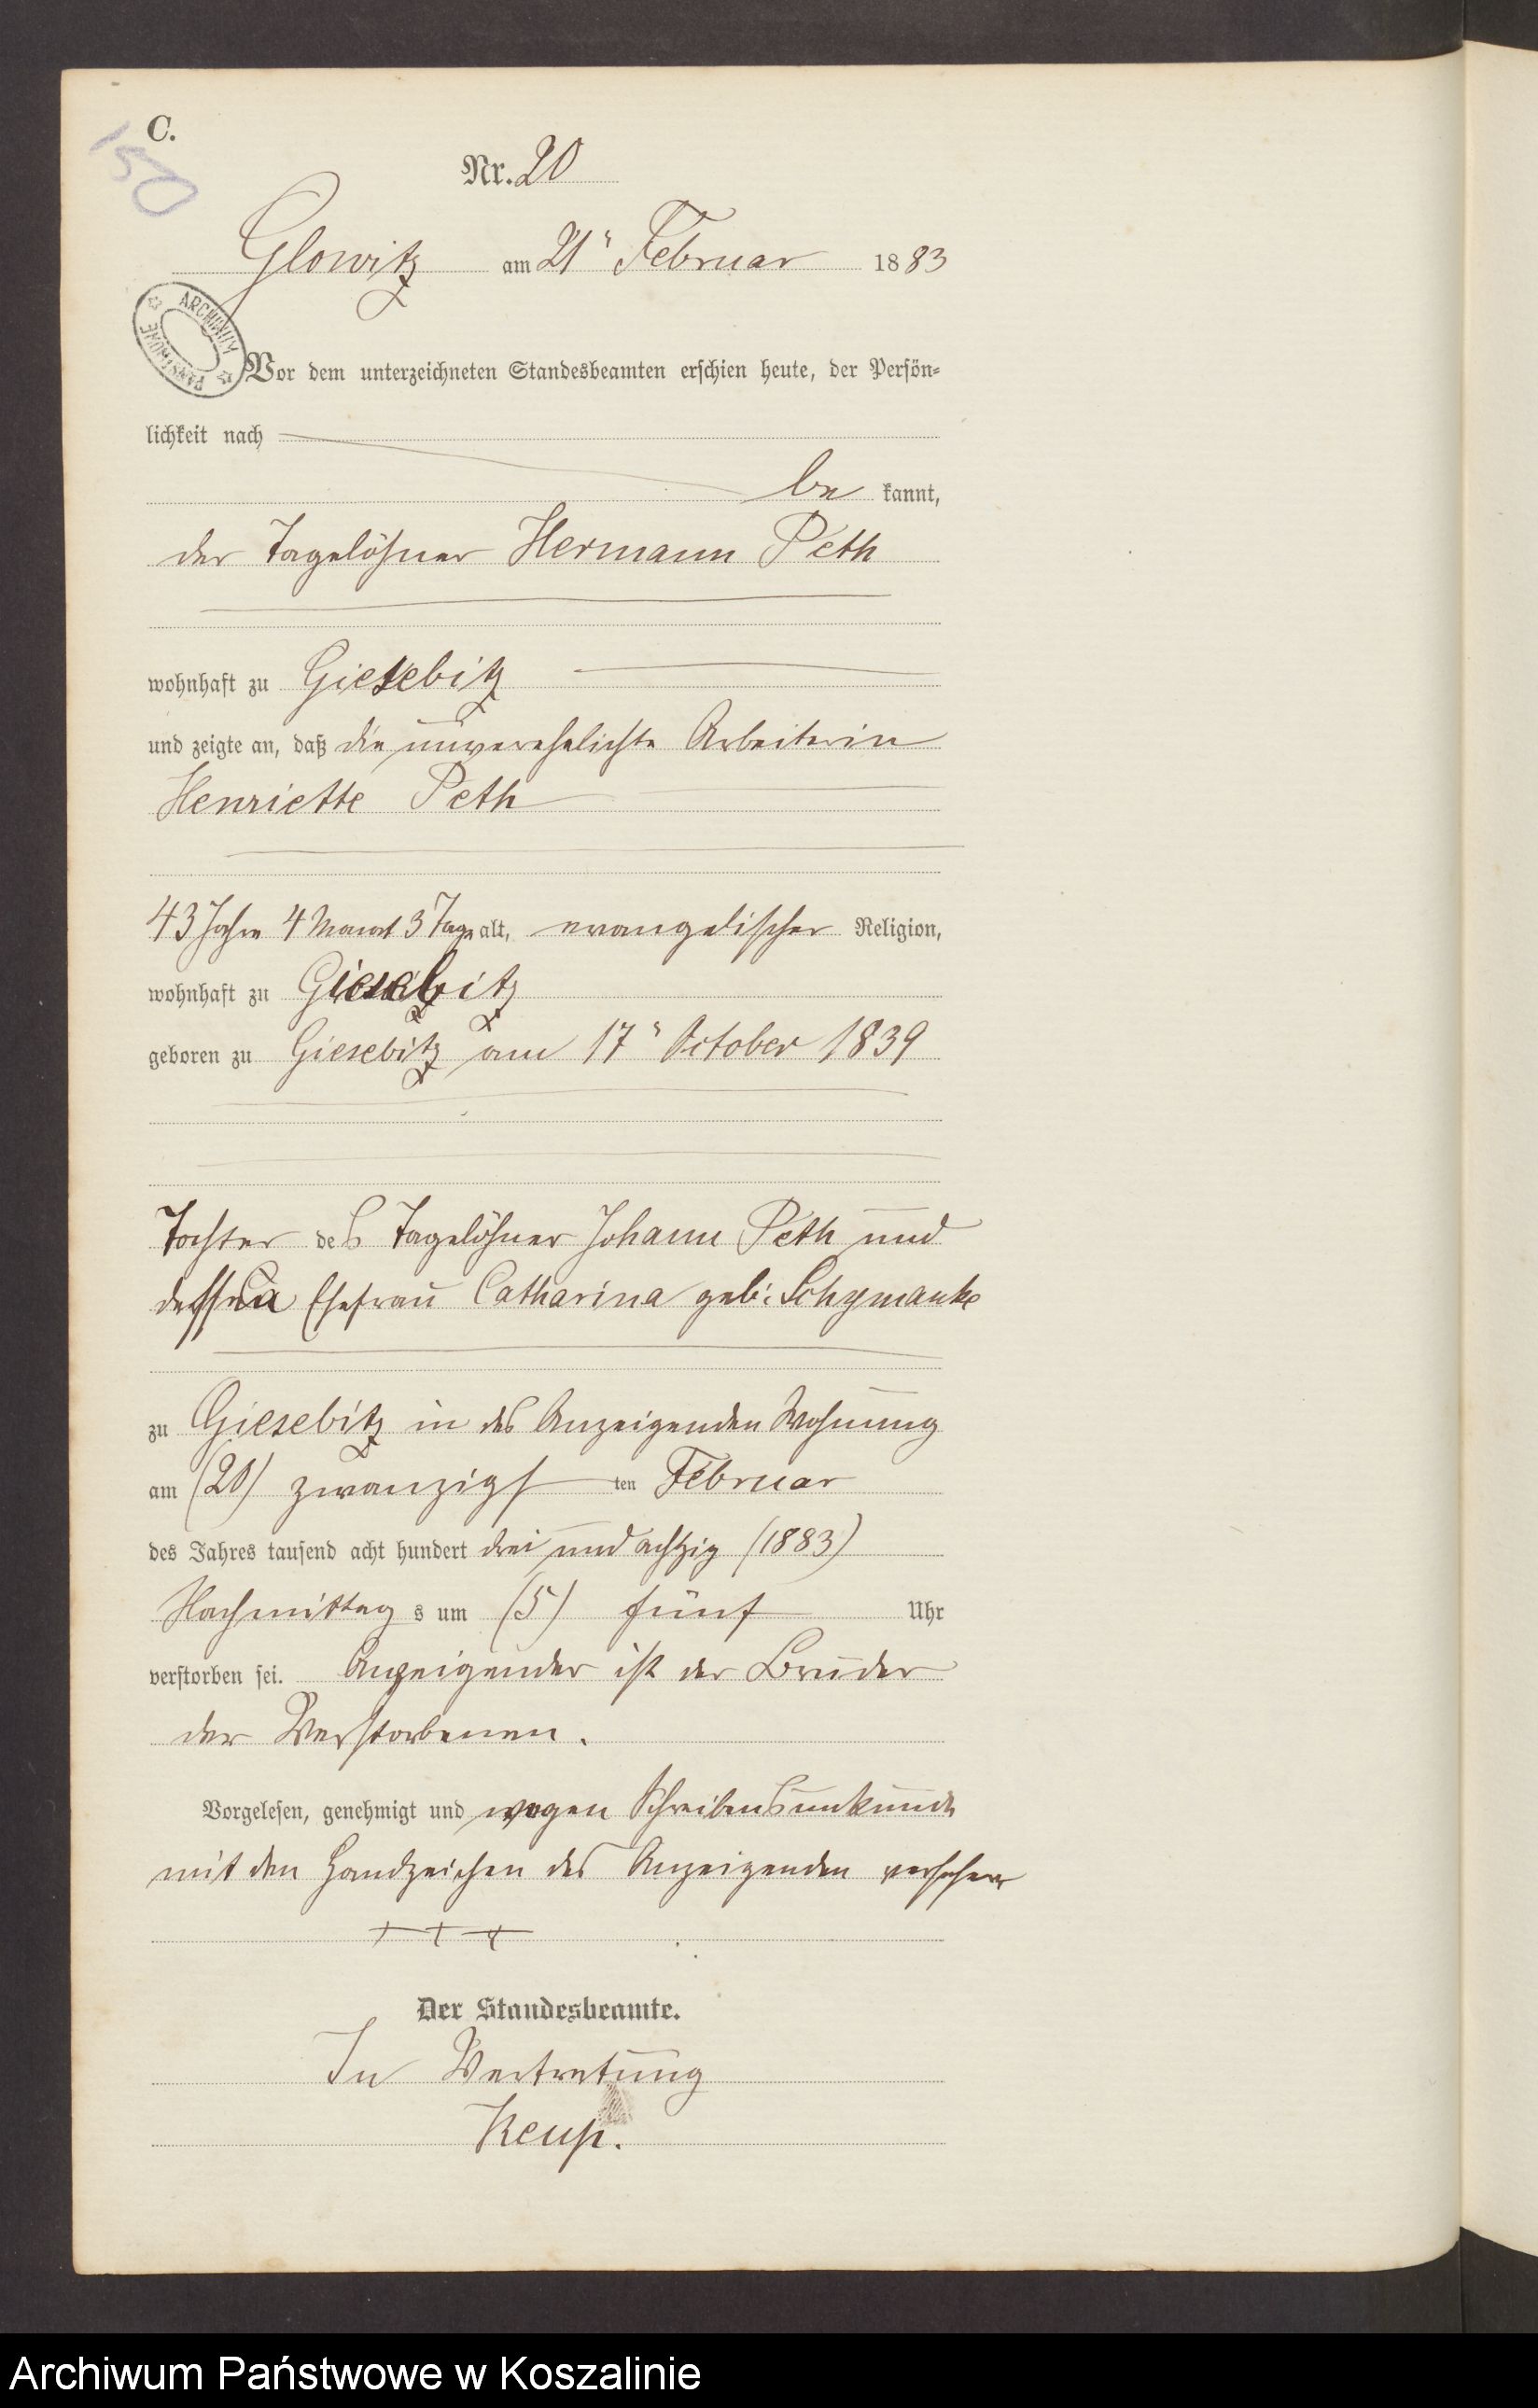 C.
150
Nr. 20
Glowitz am 21" Februar 1883
ARCHIWUM PAŃSTWOWE
Vor dem unterzeichneten Standesbeamten erschien heute, der Persön-
lichkeit nach
be kannt,
der Tagelöhner Hermann Peth
wohnhaft zu Giesebitz
und zeigte an, daß die unverehelichte Arbeiterin
Henriette Peth
43 Jahre 4 Monat 3 Tage alt, evangelischer Religion,
wohnhaft zu Giesebitz
geboren zu Giesebitz am 17" October 1839
Tochter des Tagelöhner Johann Peth und
dessen Ehefrau Catharina geb: Schymanke
zu Giesebitz in des Anzeigenden Wohnung
am (20) zwanzigsten Februar
des Jahres tausend acht hundert drei und achtzig (1883)
Nachmittags um (5) fünf Uhr
verstorben sei. Anzeigender ist der Bruder
der Verstorbenen.
Vorgelesen, genehmigt und wegen Schreibensunkunde
mit den Handzeichen des Anzeigenden versehen
+++
Der Standesbeamte.
In Vertretung
Archiwum Państwowe w Koszalinie